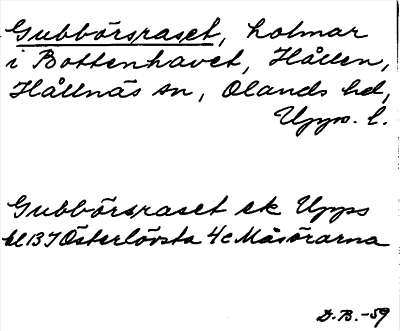 Gubbörsraset, holmar
i Bottenhavet, Hållen,
Hållnäs sn, Olands hd,
Upps. l.
Gubbörsraset ek Upps
bl 13 I Österlövsta 4c Måsörarna
D.B.-59